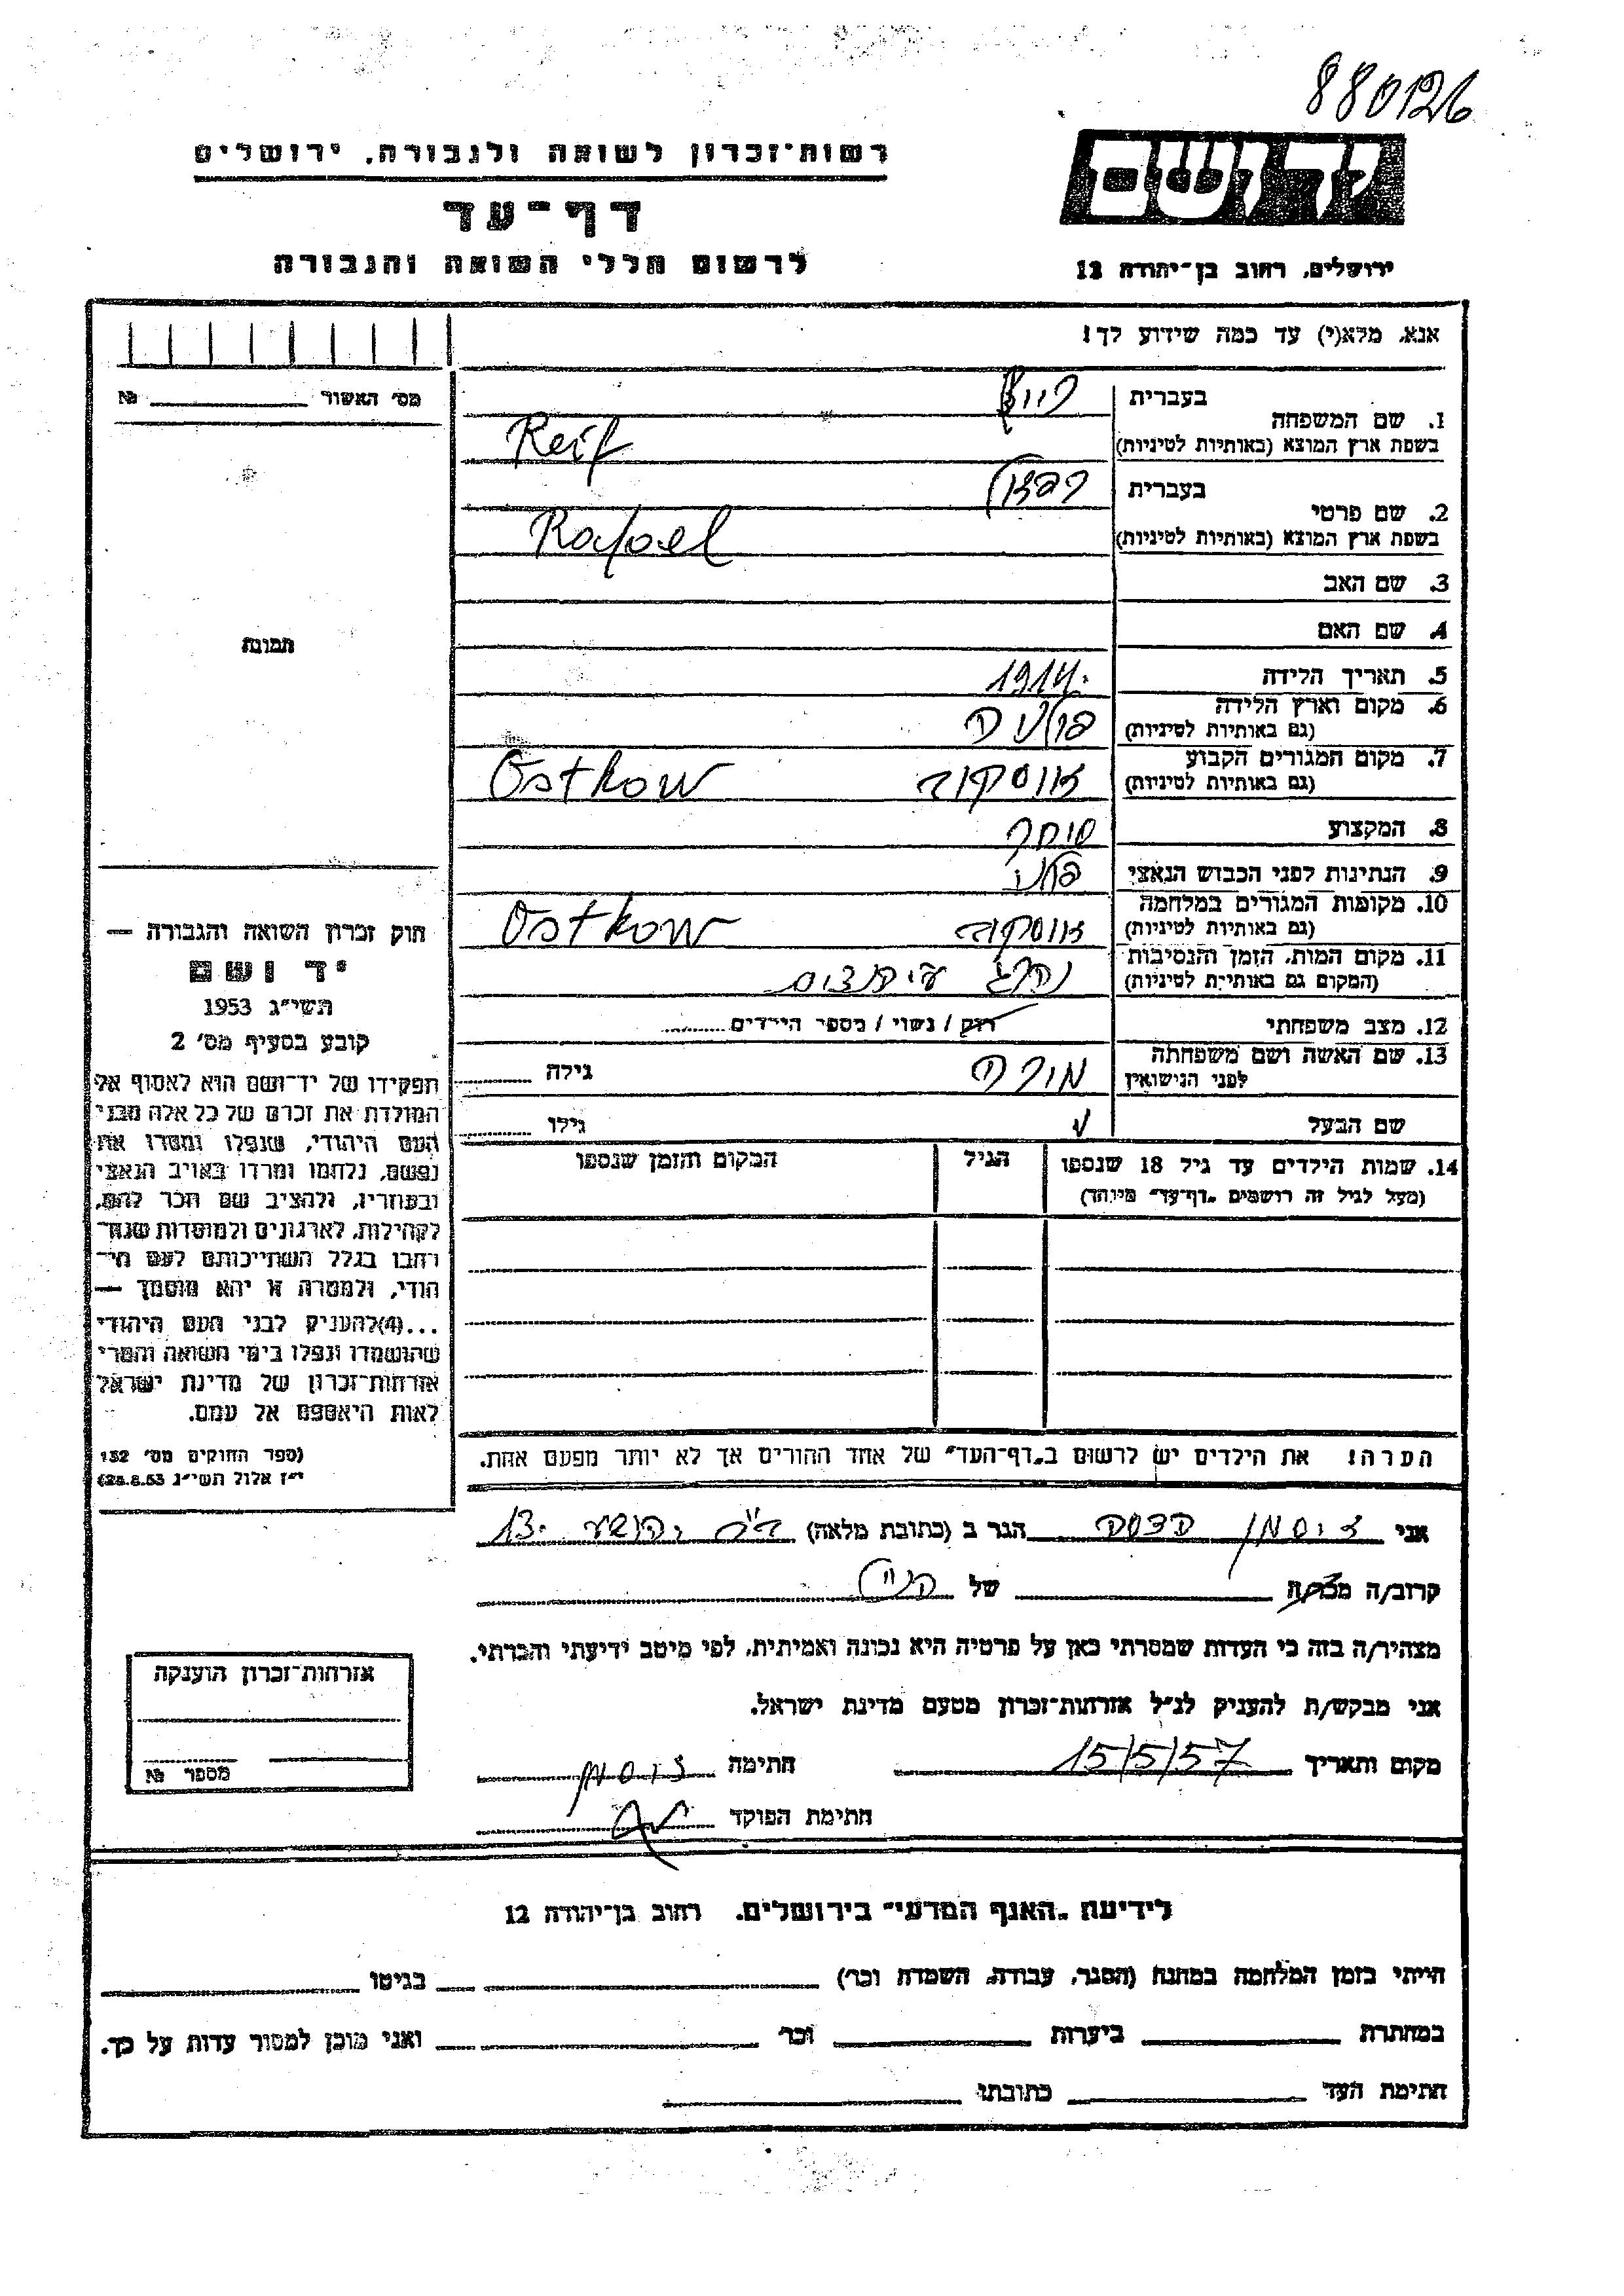 880126
רשות־זכרון לשואה ולגבורה, ירושלים
דף־עד
לרשום חללי השואה והגבורה
יד ושם
ירושלים, רחוב בן־יהודה 12
אנא, מלא(י) עד כמה שידוע לך!
מס׳ האשור № 
1. שם המשפחה
בעברית רייף
בשפת ארץ המוצא (באותיות לטיניות) Reif
2. שם פרטי
בעברית רפאל
בשפת ארץ המוצא (באותיות לטיניות) Rafael
3. שם האב
4. שם האם
5. תאריך הלידה 1914
6. מקום וארץ הלידה
(גם באותיות לטיניות) פולניה
7. מקום המגורים הקבוע
(גם באותיות לטיניות) אוסטקוב Ostkow
8. המקצוע סוחר
9. הנתינות לפני הכבוש הנאצי פולני
10. מקומות המגורים במלחמה
(גם באותיות לטיניות) אוסטקוב Ostkow
11. מקום המות, הזמן והנסיבות
(המקום גם באותיות לטיניות) נהרג
12. מצב משפחתי רוק / נשוי / מספר הילדים
13. שם האשה ושם משפחתה
לפני הנישואין גילה
שם הבעל גילו
14. שמות הילדים עד גיל 18 שנספו
(מעל לגיל זה רושמים „דף־עד״ מיוחד)
הגיל
המקום והזמן שנספו
הערה! את הילדים יש לרשום ב„דף־העד״ של אחד ההורים אך לא יותר מפעם אחת.
תמונה
חוק זכרון השואה והגבורה —
יד ושם
תשי״ג 1953
קובע בסעיף מס׳ 2
תפקידו של יד־ושם הוא לאסוף אל
המולדת את זכרם של כל אלה מבני
העם היהודי, שנפלו ומסרו את
נפשם, נלחמו ומרדו באויב הנאצי
ובעוזריו, ולהציב שם וזכר להם,
לקהילות, לארגונים ולמוסדות שנח־
רבו בגלל השתייכותם לעם הי־
הודי, ולמטרה זו יהא מוסמך —
...(4)להעניק לבני העם היהודי
שהושמדו ונפלו בימי השואה והמרי
אזרחות־זכרון של מדינת ישראל
לאות היאספם אל עמם.
(ספר החוקים מס׳ 132
י״ז אלול תשי״ג 28.8.53)
אני זוסמן הדסה הגר ב (כתובת מלאה) יהושע 13
קרוב/ה מכר/ה של הנ״ל
מצהיר/ה בזה כי העדות שמסרתי כאן על פרטיה היא נכונה ואמיתית, לפי מיטב ידיעתי והכרתי.
אני מבקש/ת להעניק לנ״ל אזרחות־זכרון מטעם מדינת ישראל.
מקום ותאריך 15/5/57 חתימה זוסמן
חתימת הפוקד
אזרחות־זכרון הוענקה
מספר №
לידיעת „האגף המדעי״ בירושלים, רחוב בן־יהודה 12
הייתי בזמן המלחמה במחנה (הסגר, עבודה, השמדה וכו׳) בגיטו
במחתרת ביערות וכו׳ ואני מוכן למסור עדות על כך.
חתימת העד כתובתו